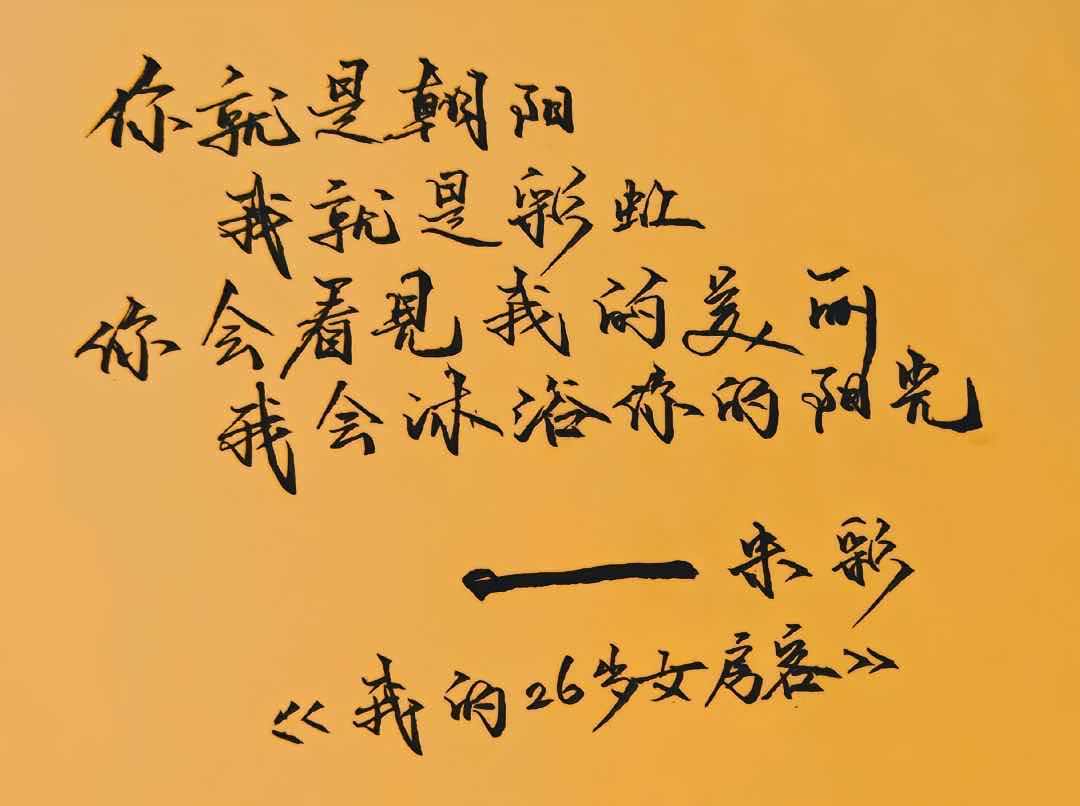 你就是朝阳
我就是彩虹
你会看见我的美丽
我会沐浴你的阳光
——米彩
《我的26岁女房客》